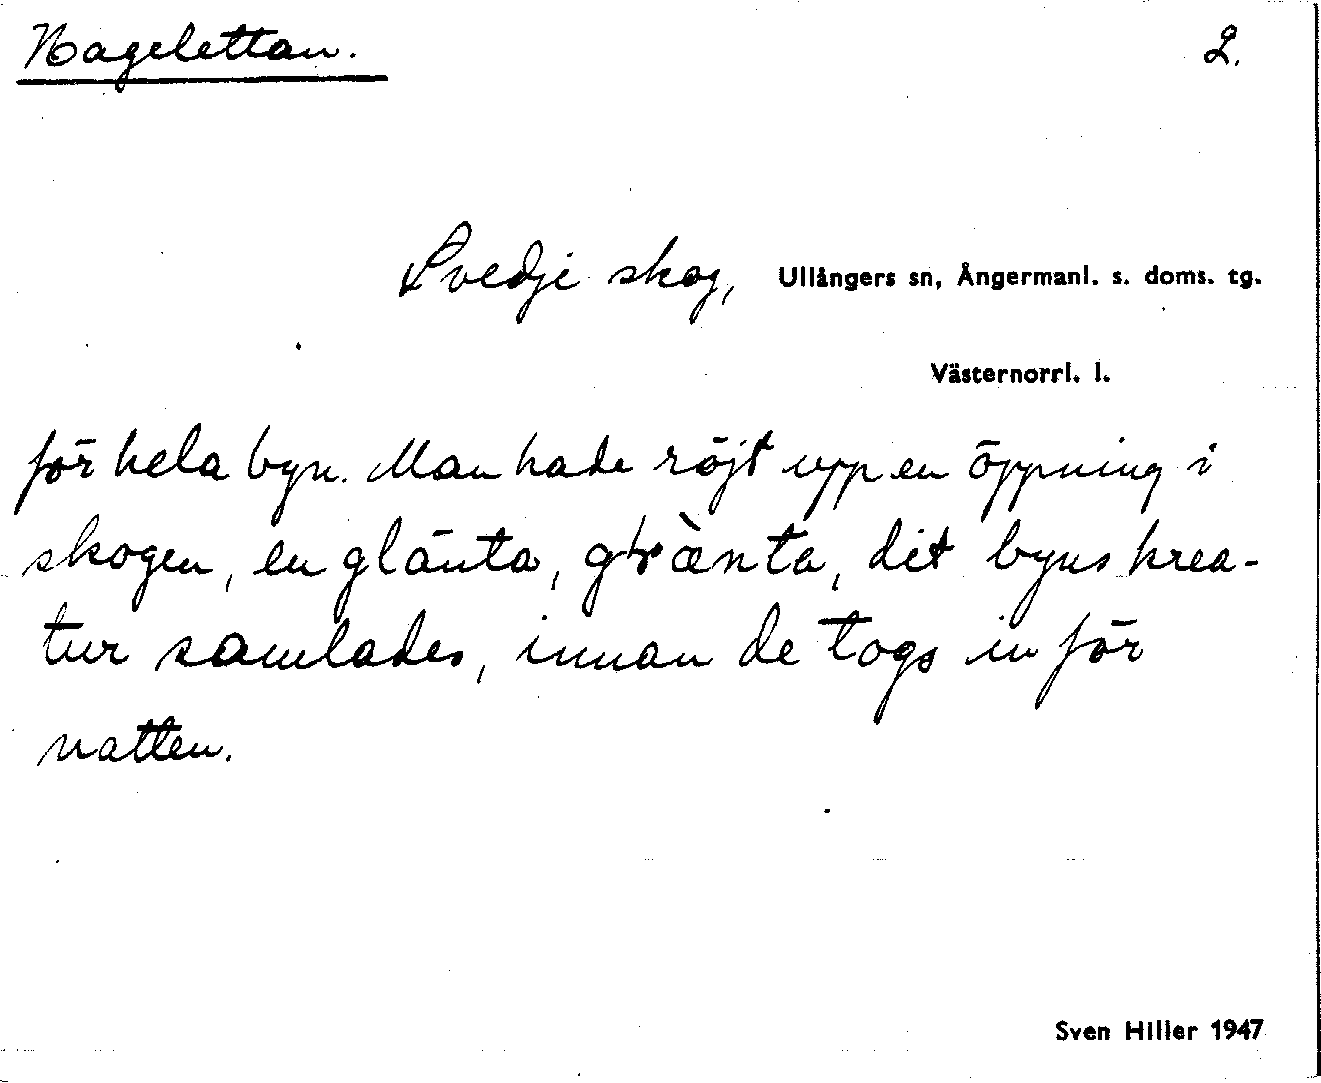 Hagelettan. 2.
Svedje skog, Ullångers sn, Ångermanl. s. doms. tg.
Västernorrl. l.
för hela byn. Man hade röjt upp en öppning i
skogen, en glänta, 
dit byns krea-
tur samlades, innan de togs in för
natten.
Sven Hiller 1947